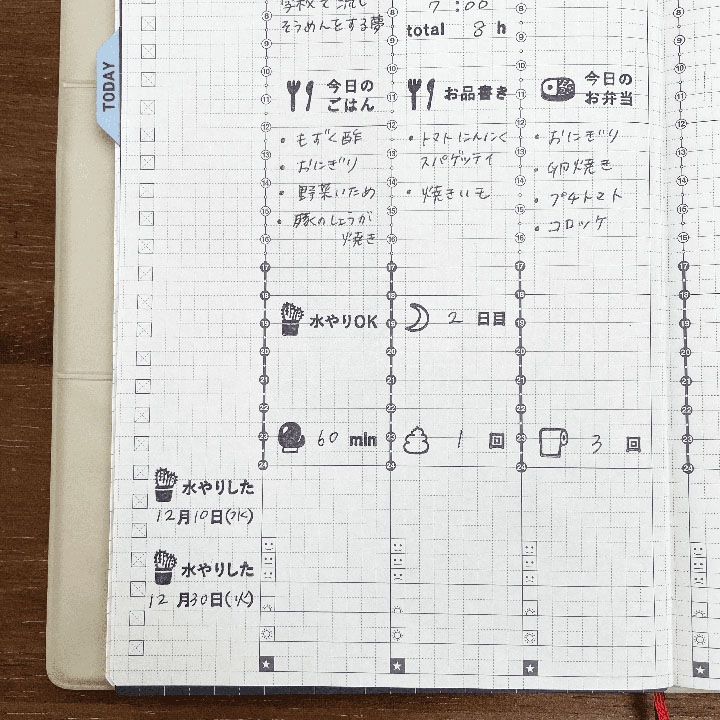 TODAY
学校で流し
そうめんをする夢
今日の
ごはん
・もずく酢
・おにぎり
・野菜いため
・豚のしょうが
焼き
水やりOK
60 min
7:00
total 8 h
お品書き
・トマトにんにく
スパゲッティ
・焼きいも
2 日目
1 回
今日の
お弁当
・おにぎり
・卵焼き
・プチトマト
・コロッケ
3 回
水やりした
12月10日(水)
水やりした
12月30日(火)
8
9
10
11
12
13
14
15
16
17
18
19
20
21
22
23
24